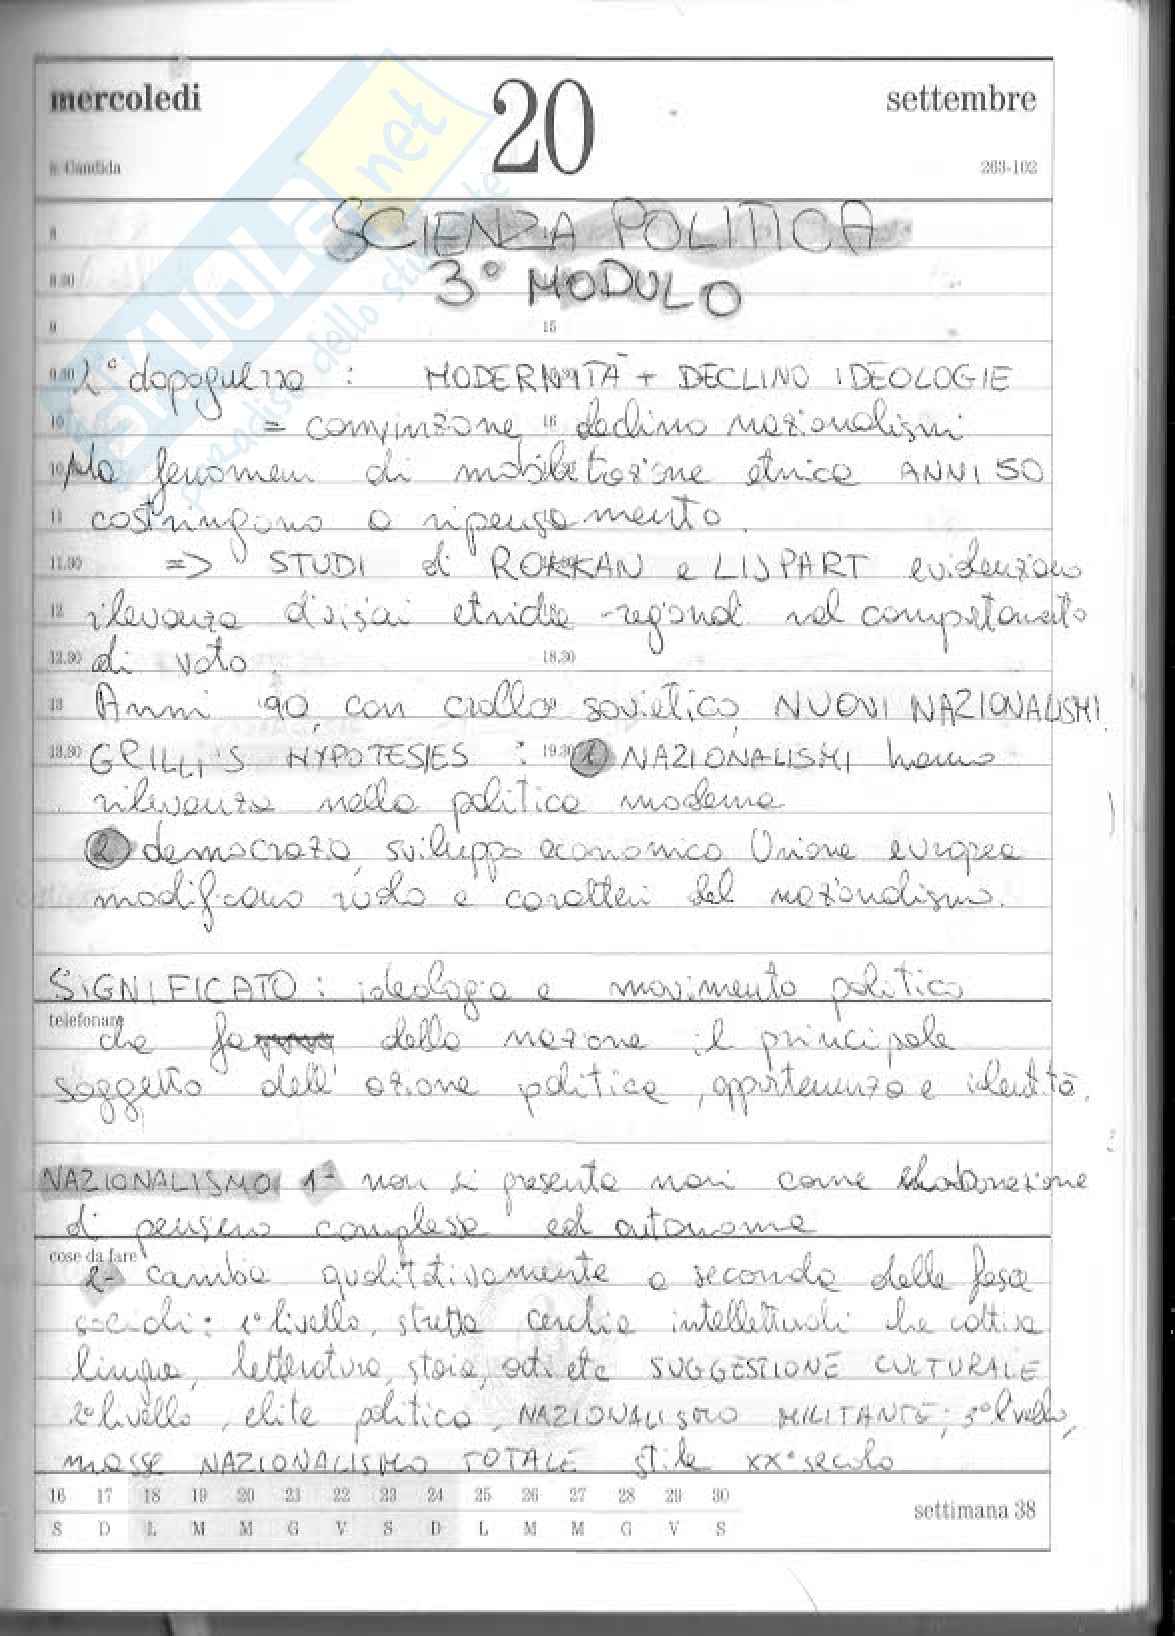 mercoledì 20 settembre
s. Candida 263-102
SKUOLA.net
paradiso dello studente
8 SCIENZA POLITICA
8.30 3° MODULO
9 15
9.30 2° dopoguerra : MODERNITÀ + DECLINO IDEOLOGIE
10 = convinzione 16 declino nazionalismi
10.30 Ma fenomeni di mobilitazione etnica ANNI 50
11 costringono a ripensamento.
11.30 => STUDI di ROKKAN e LIJPART evidenziano
12 rilevanza divisioni etniche-regionali nel comportamento
12.30 di voto. 18.30
13 Anni '90, con crollo sovietico, NUOVI NAZIONALISMI.
13.30 GRILLI'S HYPOTESIES : 19.30 1 NAZIONALISMI hanno
rilevanza nella politica moderna
2 democrazia, sviluppo economico, Unione europea
modificano ruolo e caratteri del nazionalismo.
SIGNIFICATO : ideologia e movimento politico
telefonare
che fa della nazione il principale
soggetto dell'azione politica, appartenenza e identità.
NAZIONALISMO 1- non si presenta mai come elaborazione
di pensiero complessa ed autonoma
cose da fare
2- cambia qualitativamente a seconda delle fasce
sociali: 1° livello, stretta cerchia intellettuali che coltiva
lingua, letteratura, storia, arti etc SUGGESTIONE CULTURALE
2° livello, elite politica, NAZIONALISMO MILITANTE; 3° livello,
masse NAZIONALISMO TOTALE stile XX° secolo
16 17 18 19 20 21 22 23 24 25 26 27 28 29 30
S D L M M G V S D L M M G V S
settimana 38